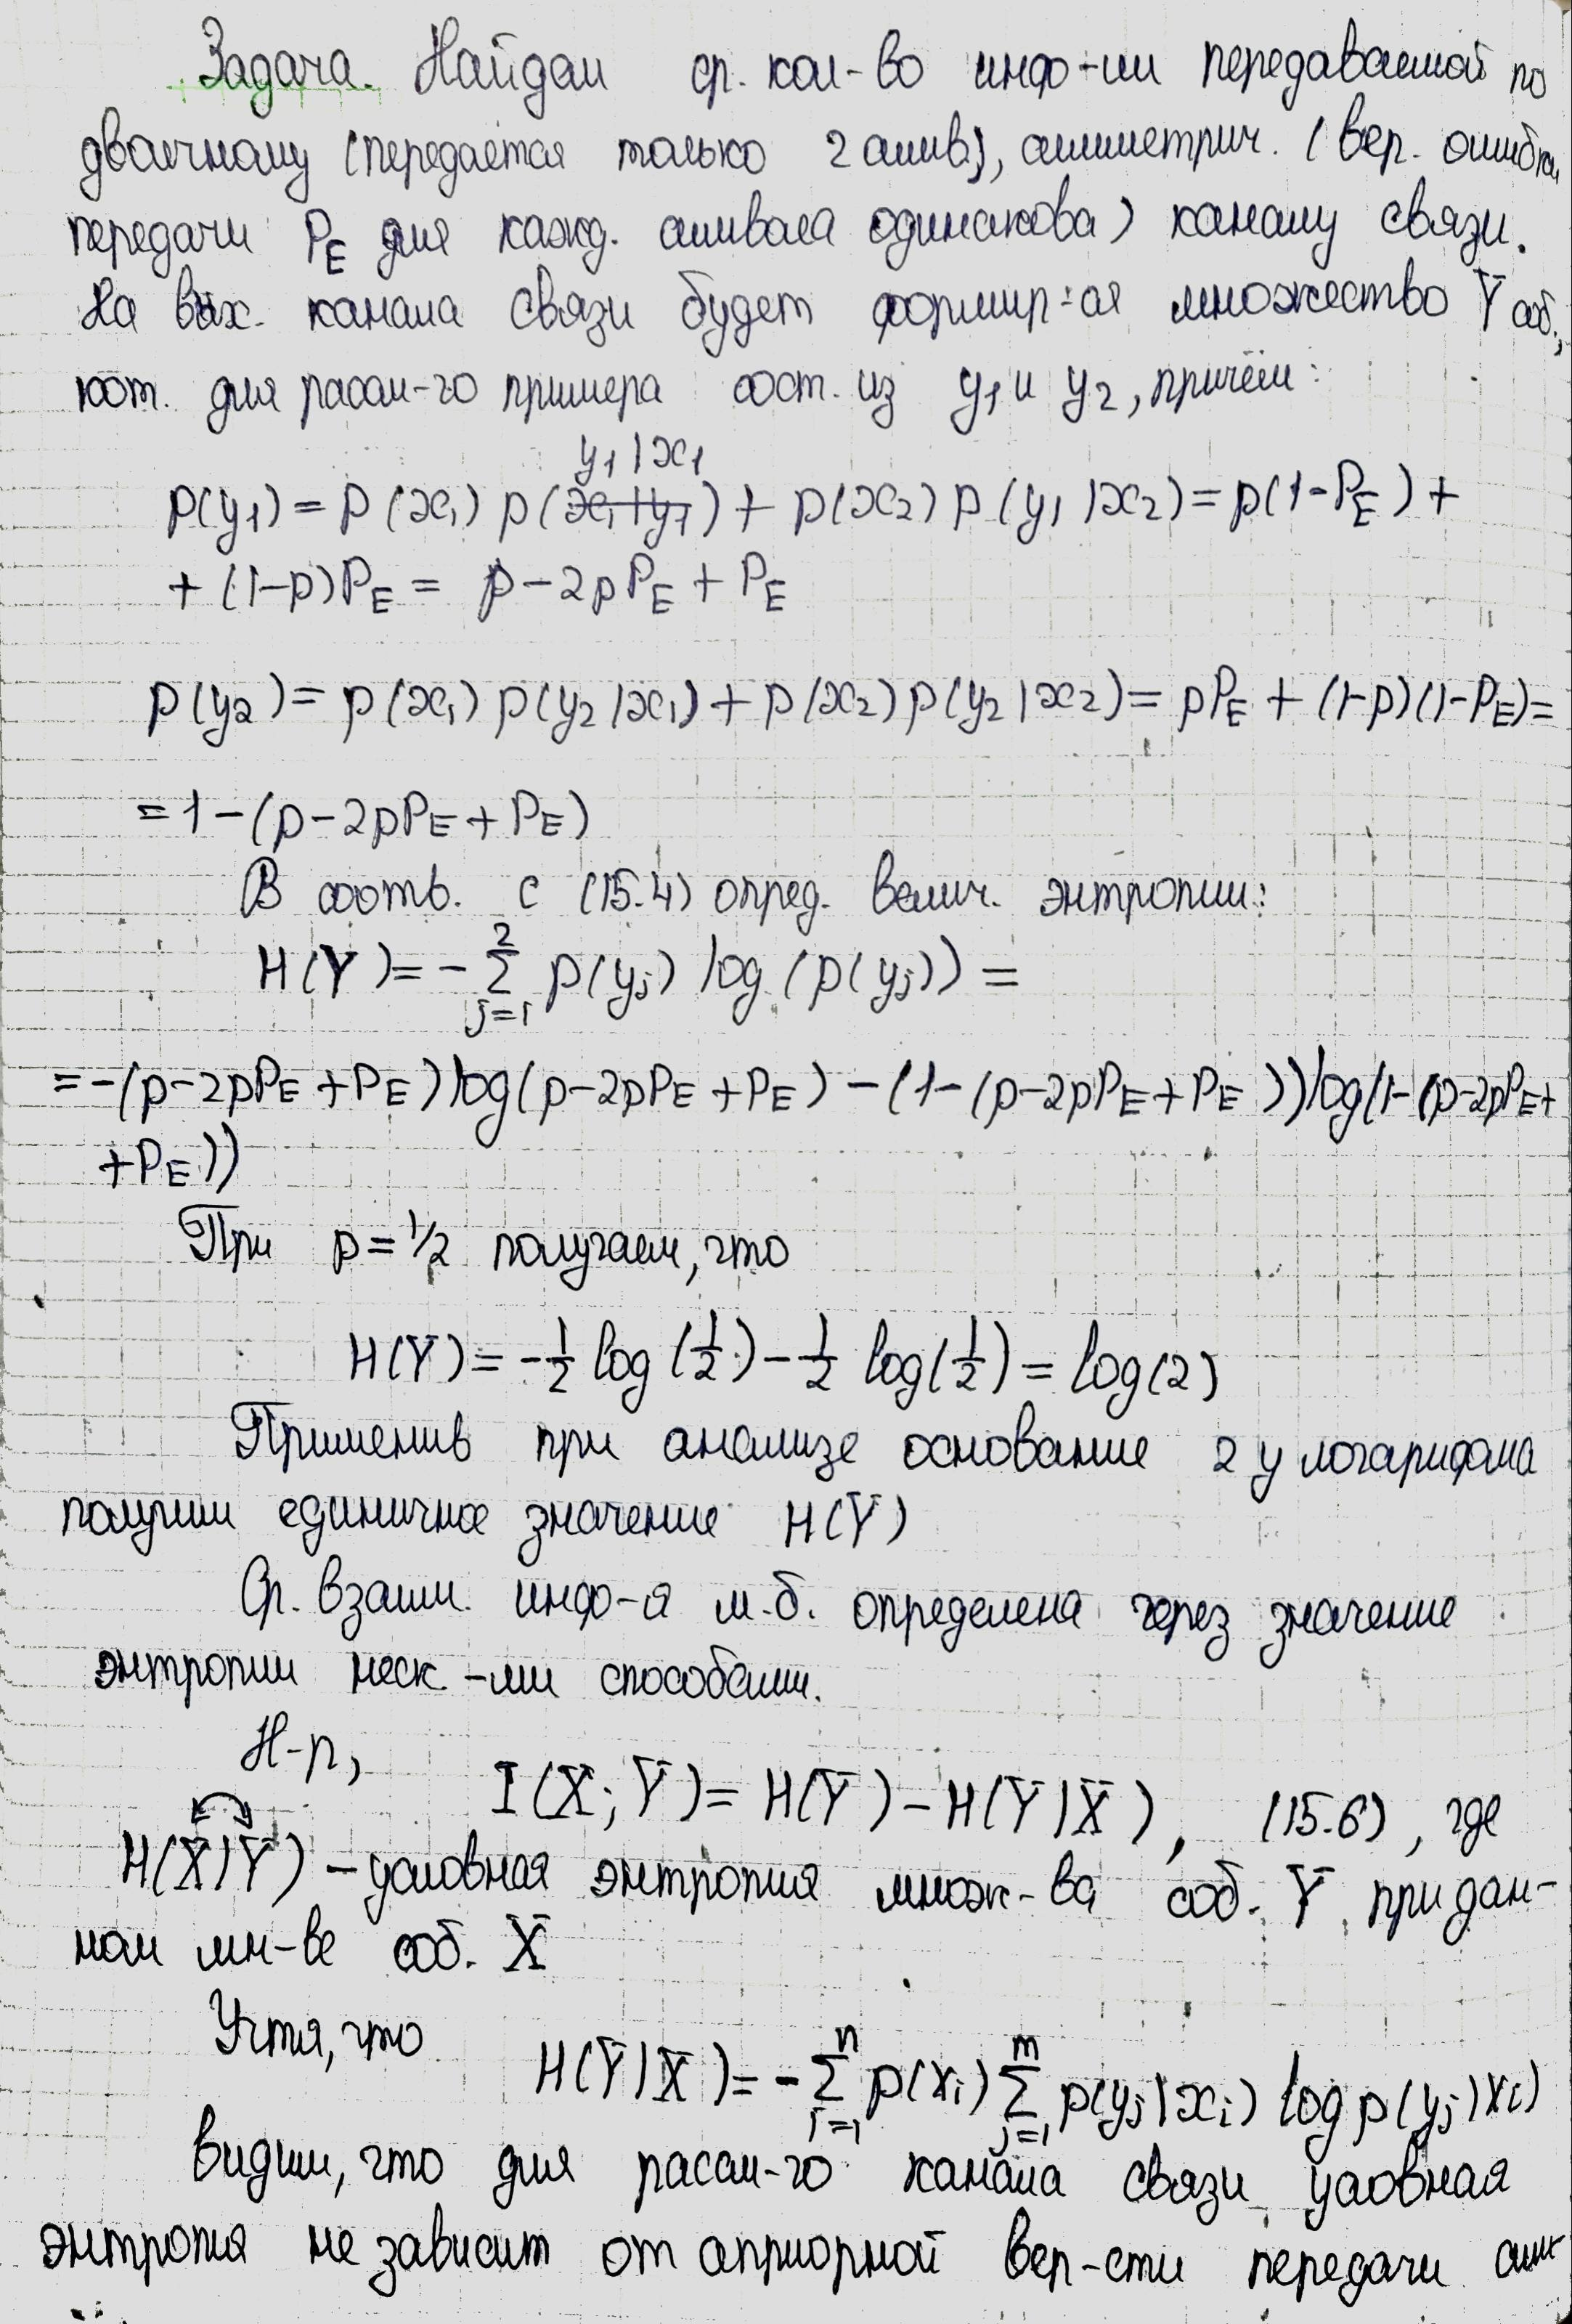 Задача. Найдем ср. кол-во инф-ии передаваемой по
двоичному (передается только 2 симв.), симметрич. (вер. ошибки
передачи P_E для кажд. символа одинакова) каналу связи.
На вых. канала связи будет формир-ся множество Y̅ соб.,
кот. для рассм-го примера сост. из y₁ и y₂, причём:
y₁|x₁
p(y₁) = p(x₁) p(x₁|y₁) + p(x₂) p(y₁|x₂) = p(1-P_E) +
+ (1-p)P_E = p - 2pP_E + P_E
p(y₂) = p(x₁) p(y₂|x₁) + p(x₂) p(y₂|x₂) = pP_E + (1-p)(1-P_E) =
= 1 - (p - 2pP_E + P_E)
В соотв. с (15.4) опред. велич. энтропии:
H(Y̅) = - ∑_{j=1}^{2} p(yⱼ) log(p(yⱼ)) =
= -(p - 2pP_E + P_E) log(p - 2pP_E + P_E) - (1 - (p - 2pP_E + P_E)) log(1 - (p - 2pP_E +
+ P_E))
При p = 1/2 получаем, что
H(Y̅) = - 1/2 log(1/2) - 1/2 log(1/2) = log(2)
Применив при анализе основание 2 у логарифма
получим единичное значение H(Y̅)
Ср. взаим. инф-я м.б. определена через значение
энтропии неск-ми способами.
Н-р,
I(X̅; Y̅) = H(Y̅) - H(Y̅|X̅), (15.6), где
H(X̅|Y̅) - условная энтропия множ-ва соб. Y̅ при дан-
ном мн-ве соб. X̅
Учтя, что
H(Y̅|X̅) = - ∑_{i=1}^{n} p(xᵢ) ∑_{j=1}^{m} p(yⱼ|xᵢ) log p(yⱼ|xᵢ)
видим, что для рассм-го канала связи условная
энтропия не зависит от априорной вер-сти передачи